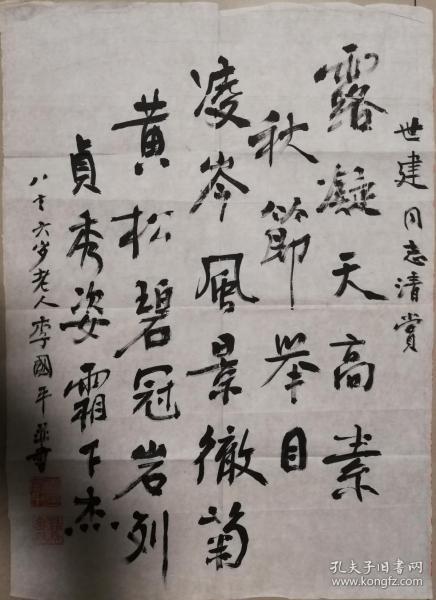 世建同志清赏
露凝天高素
秋節举目
凌岑風景徹菊
黄松碧冠岩列
貞秀姿霜下杰
八十六岁老人李國平
孔夫子旧书网
www.kongfz.com